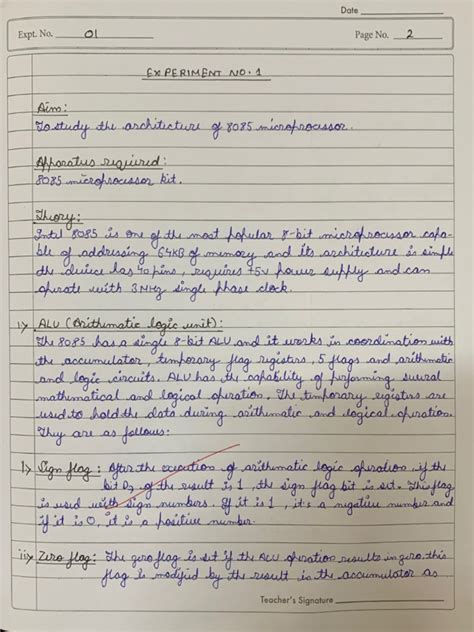 Date
Expt. No. 01
Page No. 2
EXPERIMENT NO. 1
Aim:
To study the architecture of 8085 microprocessor.
Apparatus required:
8085 microprocessor kit.
Theory:
Intel 8085 is one of the most popular 8-bit microprocessor capa-
ble of addressing 64KB of memory and its architecture is simple
the device has 40 pins, requires +5v power supply and can
operate with 3MHz single phase clock.
i) ALU (Arithmatic logic unit):
The 8085 has a single 8-bit ALU and it works in coordination with
the accumulator temporary flag registers, 5 flags and arithmatic
and logic circuits. ALU has the capability of performing several
mathematical and logical operation. The temporary registers are
used to hold the data during arithmatic and logical operation.
They are as follows:
i) Sign flag: After the execution of arithmatic logic operation if the
bit D7 of the result is 1, the sign flag bit is set. This flag
is used with sign numbers. If it is 1, it's a negative number and
if it is 0, it is a positive number.
ii) Zero flag: The zero flag is set if the ALU operation results in zero. this
flag is modified by the result is the accumulator as
Teacher's Signature